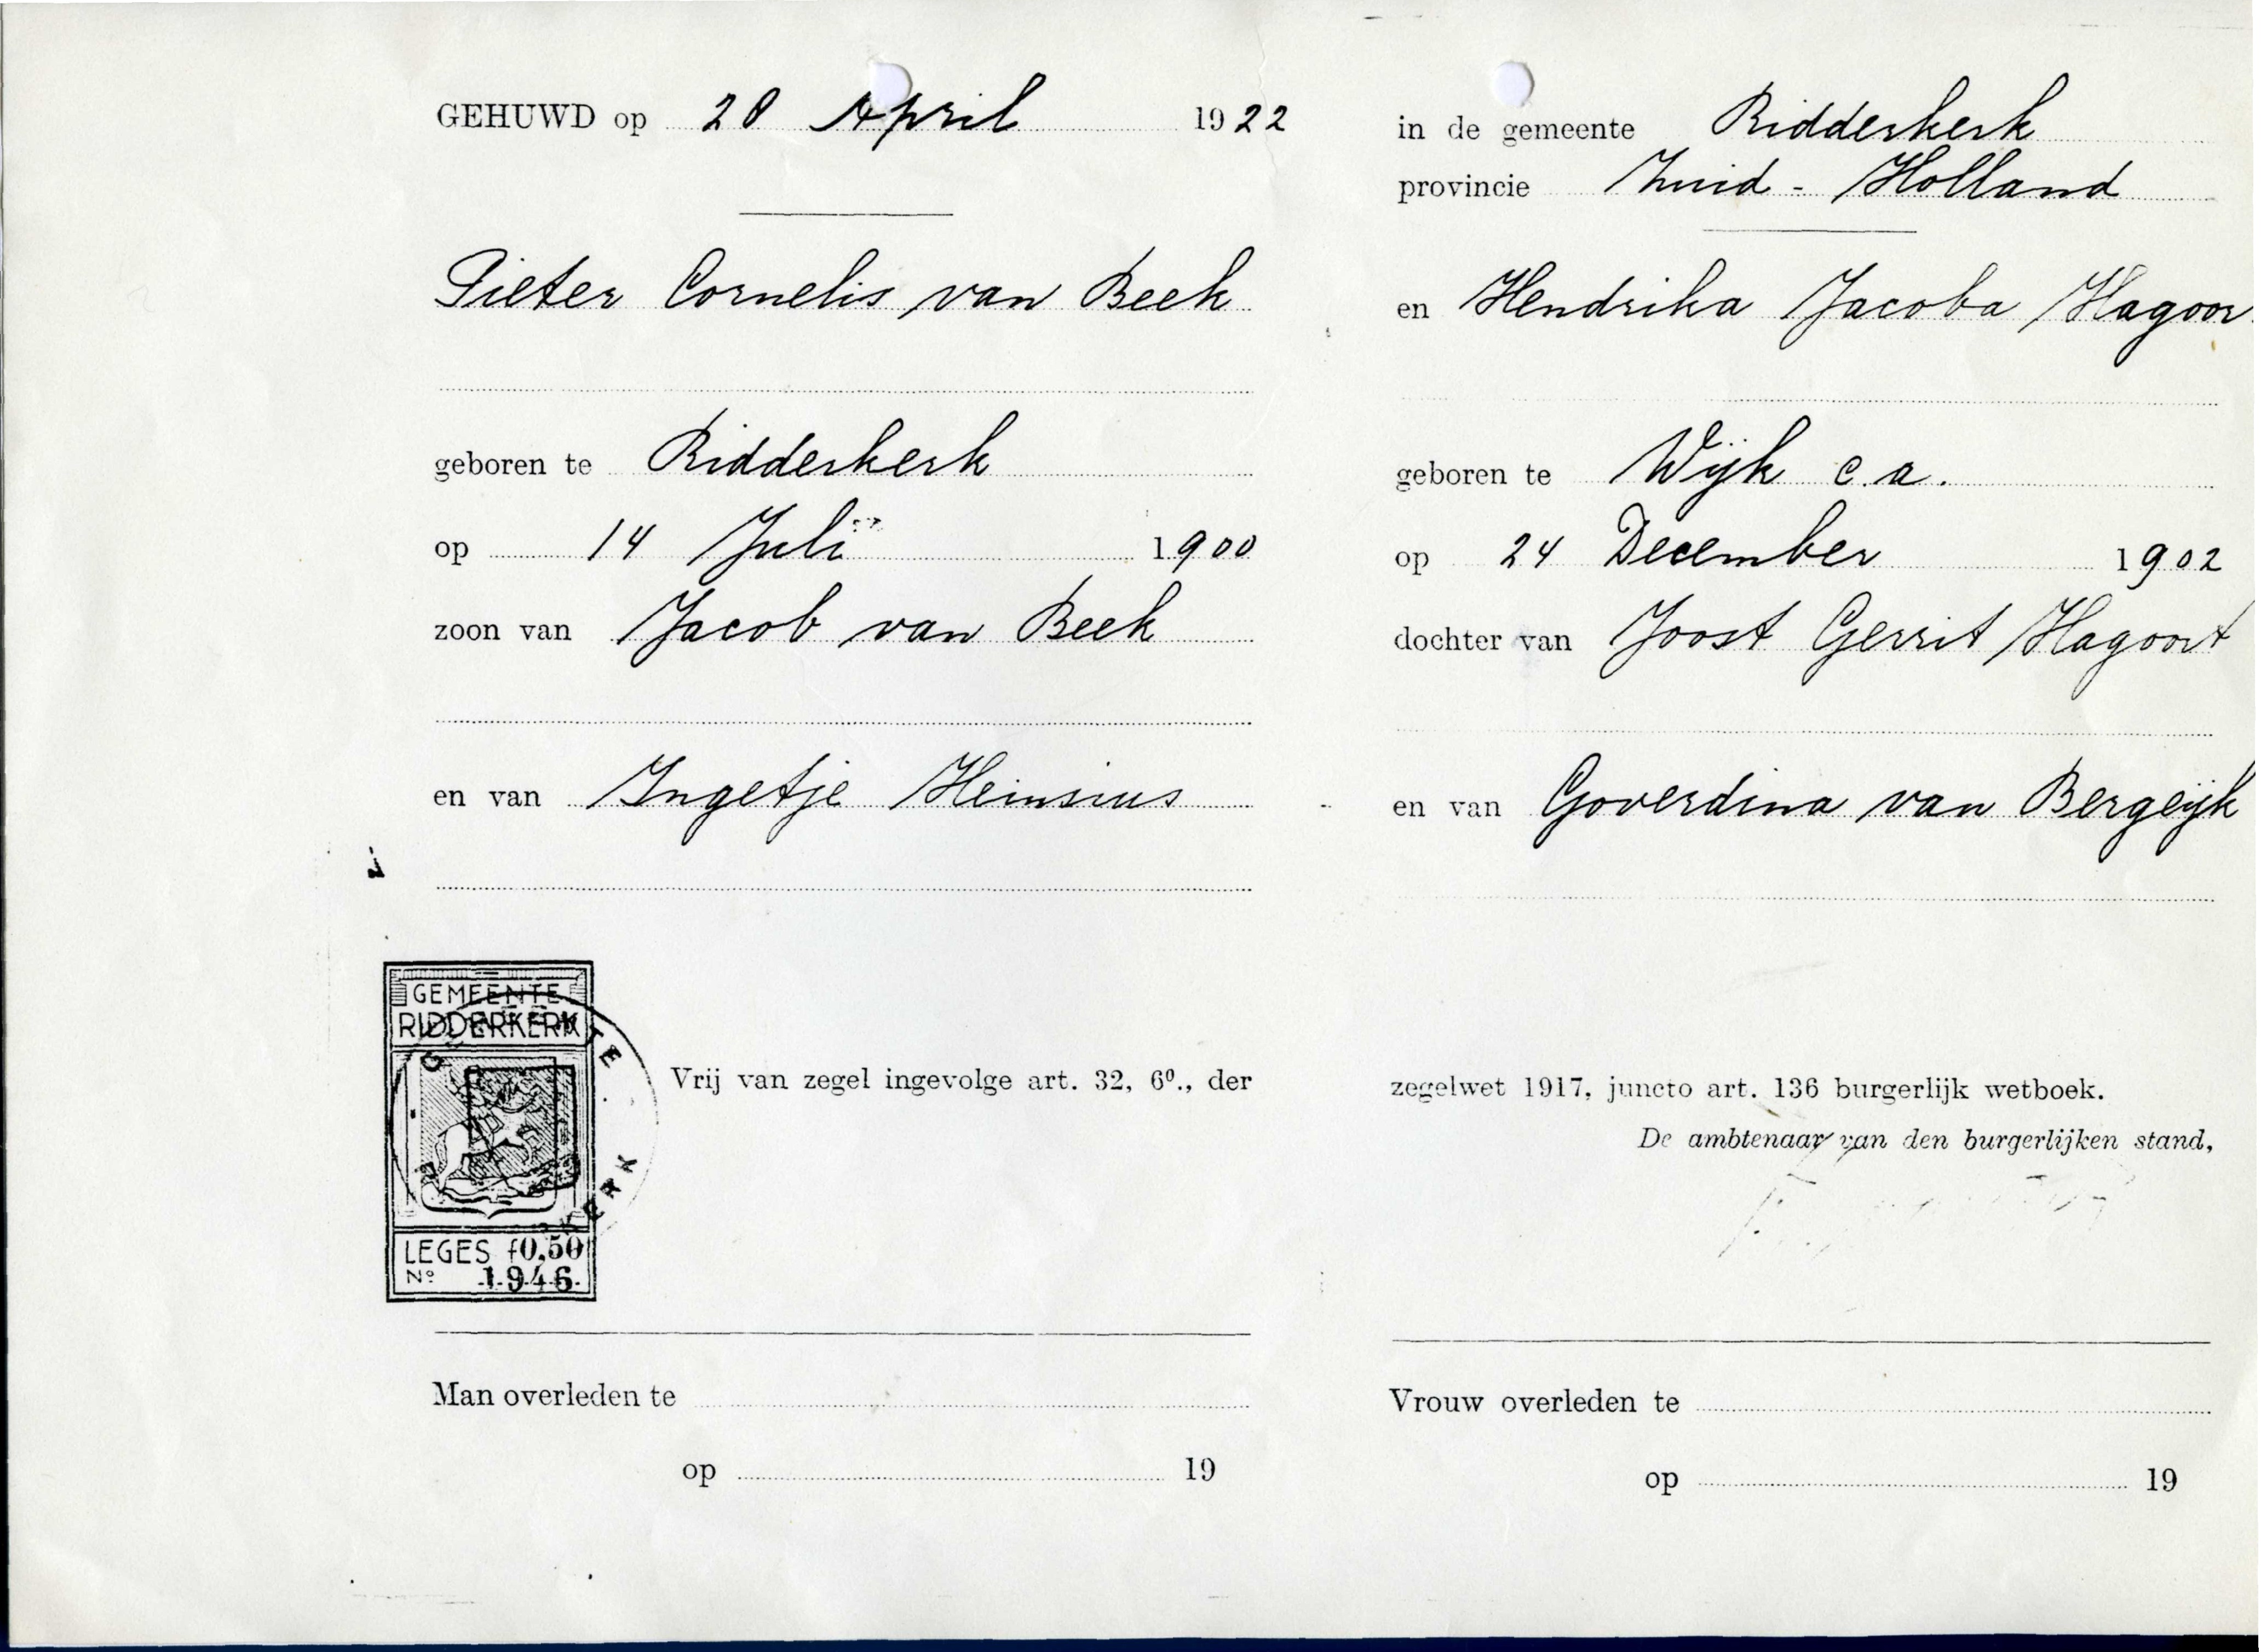 GEHUWD op 28 April 1922
Pieter Cornelis van Beek
geboren te Ridderkerk
op 14 Juli 1900
zoon van Jacob van Beek
en van Ingetje Heinsius
GEMEENTE
RIDDERKERK
LEGES f0,50
No 1946
Vrij van zegel ingevolge art. 32, 6º., der
Man overleden te
op 19
in de gemeente Ridderkerk
provincie Zuid-Holland
en Hendrika Jacoba Hagoor
geboren te Wijk c.a.
op 24 December 1902
dochter van Joost Gerrit Hagoort
en van Goverdina van Bergeijk
zegelwet 1917, juncto art. 136 burgerlijk wetboek.
De ambtenaar van den burgerlijken stand,
Vrouw overleden te
op 19